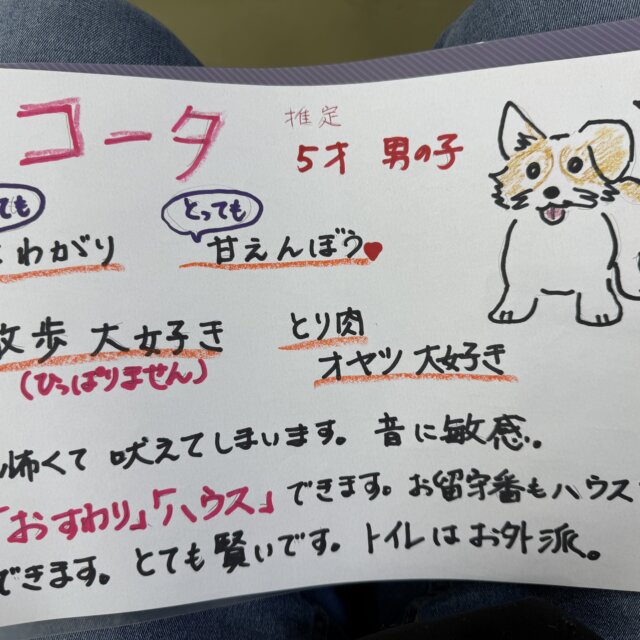 コータ
推定
5才 男の子
ても
わがり
とっても
甘えんぼう
散歩 大好き
(ひっぱりません)
とり肉
オヤツ 大好き
怖くて 吠えてしまいます。 音に敏感。
「おすわり」「ハウス」できます。お留守番もハウス
できます。とても賢いです。トイレはお外派。